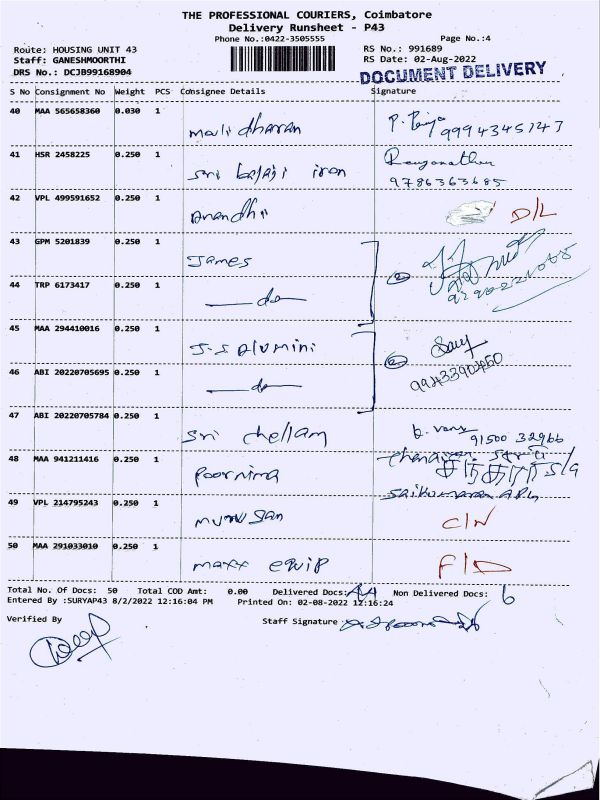 THE PROFESSIONAL COURIERS, Coimbatore
Delivery Runsheet - P43
Phone No.:0422-3505555
Page No.:4
Route: HOUSING UNIT 43
RS No.: 991689
Staff: GANESHMOORTHI
RS Date: 02-Aug-2022
DRS No.: DCJB99168904
DOCUMENT DELIVERY
S No Consignment No Weight PCS Consignee Details Signature
40 MAA 565658360 0.030 1
mali dharan 9994345743
41 HSR 2458225 0.250 1
sri balaji iron
9786363685
42 VPL 499591652 0.250 1
Anandhi D/L
43 GPM 5201839 0.250 1
James
44 TRP 6173417 0.250 1
do
45 MAA 294410016 0.250 1
J.S Alumini
46 ABI 20220705695 0.250 1
do
47 ABI 20220705784 0.250 1
Sri chellam 91500 32966
48 MAA 941211416 0.250 1
Poornima
49 VPL 214795243 0.250 1
murugan C/N
50 MAA 291033010 0.250 1
maxx equip F/D
Total No. Of Docs: 50 Total COD Amt: 0.00 Delivered Docs: 44 Non Delivered Docs: 6
Entered By :SURYAP43 8/2/2022 12:16:04 PM Printed On: 02-08-2022 12:16:24
Verified By Staff Signature